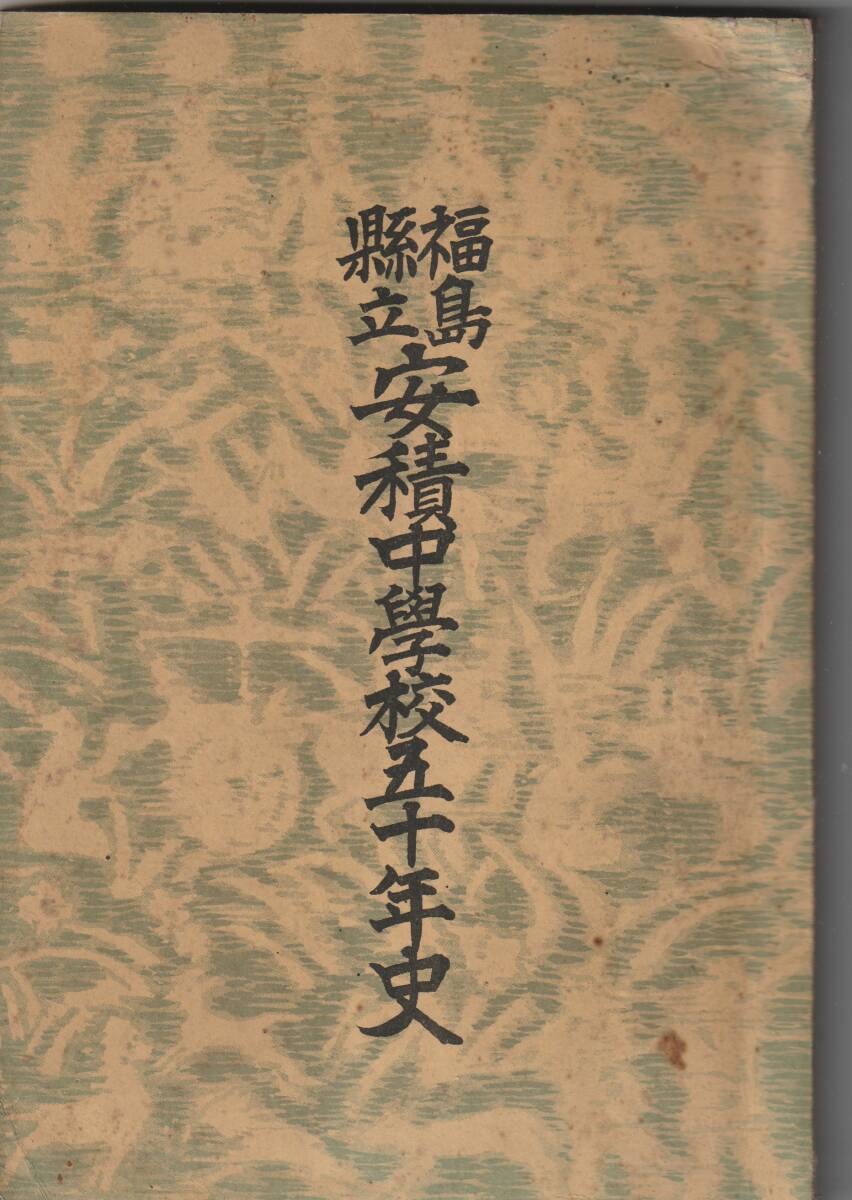 福島
縣立
安積中學校五十年史